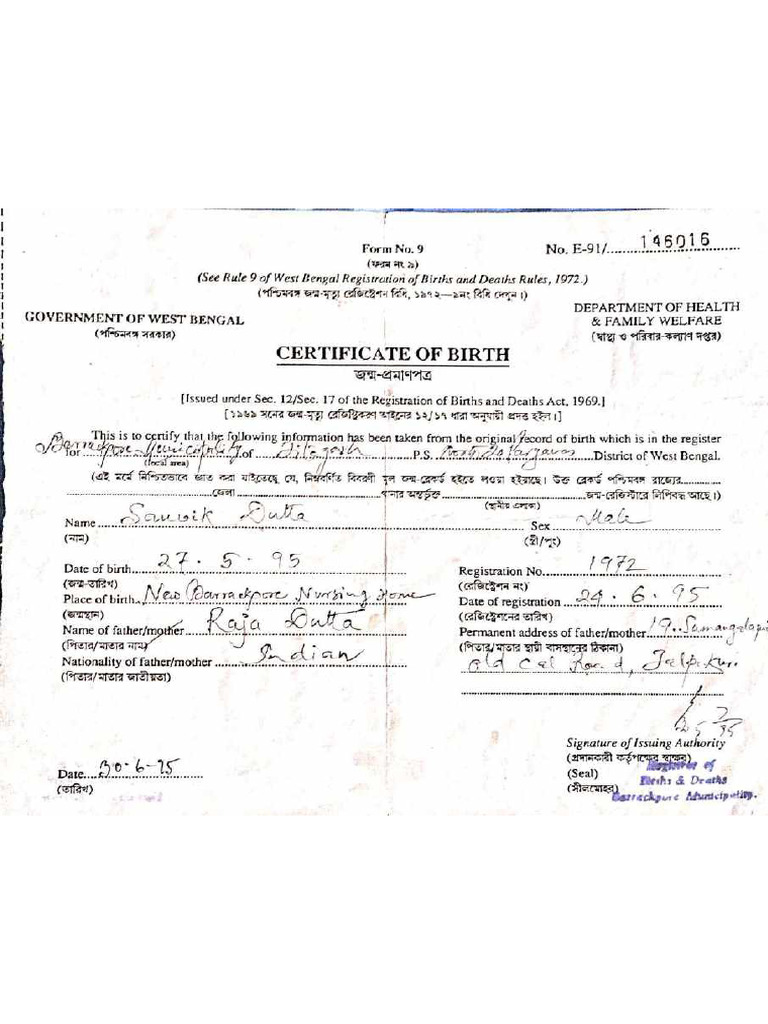 Form No. 9
No. E-91/ 146016
(ফরম নং ৯)
(See Rule 9 of West Bengal Registration of Births and Deaths Rules, 1972.)
(পশ্চিমবঙ্গ জন্ম-মৃত্যু রেজিষ্ট্রেশন বিধি, ১৯৭২—৯নং বিধি দেখুন।)
GOVERNMENT OF WEST BENGAL
(পশ্চিমবঙ্গ সরকার)
DEPARTMENT OF HEALTH
& FAMILY WELFARE
(স্বাস্থ্য ও পরিবার-কল্যাণ দপ্তর)
CERTIFICATE OF BIRTH
জন্ম-প্রমাণপত্র
[Issued under Sec. 12/Sec. 17 of the Registration of Births and Deaths Act, 1969.]
[১৯৬৯ সনের জন্ম-মৃত্যু রেজিষ্ট্রিকরণ আইনের ১২/১৭ ধারা অনুযায়ী প্রদত্ত হইল।]
This is to certify that the following information has been taken from the original record of birth which is in the register
for Barrackpore Municipality of P.S. District of West Bengal.
(local area)
(এই মর্মে নিশ্চিতভাবে জ্ঞাত করা যাইতেছে যে, নিম্নবর্ণিত বিবরণী মূল জন্ম-রেকর্ড হইতে লওয়া হইয়াছে। উক্ত রেকর্ড পশ্চিমবঙ্গ রাজ্যের
জেলা থানার অন্তর্ভুক্ত জন্ম-রেজিস্টারে লিপিবদ্ধ আছে।)
(স্থানীয় এলাকা)
Name Sauvik Dutta Sex Male
(নাম) (স্ত্রী/পুং)
Date of birth 27.5.95 Registration No. 1972
(জন্ম-তারিখ) (রেজিষ্ট্রেশন নং)
Place of birth New Barrackpore Nursing Home Date of registration 24.6.95
(জন্মস্থান) (রেজিষ্ট্রেশনের তারিখ)
Name of father/mother Raja Dutta Permanent address of father/mother 19
(পিতার/মাতার নাম) (পিতার/মাতার স্থায়ী বাসস্থানের ঠিকানা)
Nationality of father/mother Indian Old Cal Road,
(পিতার/মাতার জাতীয়তা)
Signature of Issuing Authority
(প্রদানকারী কর্তৃপক্ষের স্বাক্ষর)
Date 30.6.95 (Seal)
(তারিখ) (সীলমোহর)
Registrar of
Births & Deaths
Barrackpore Municipality.